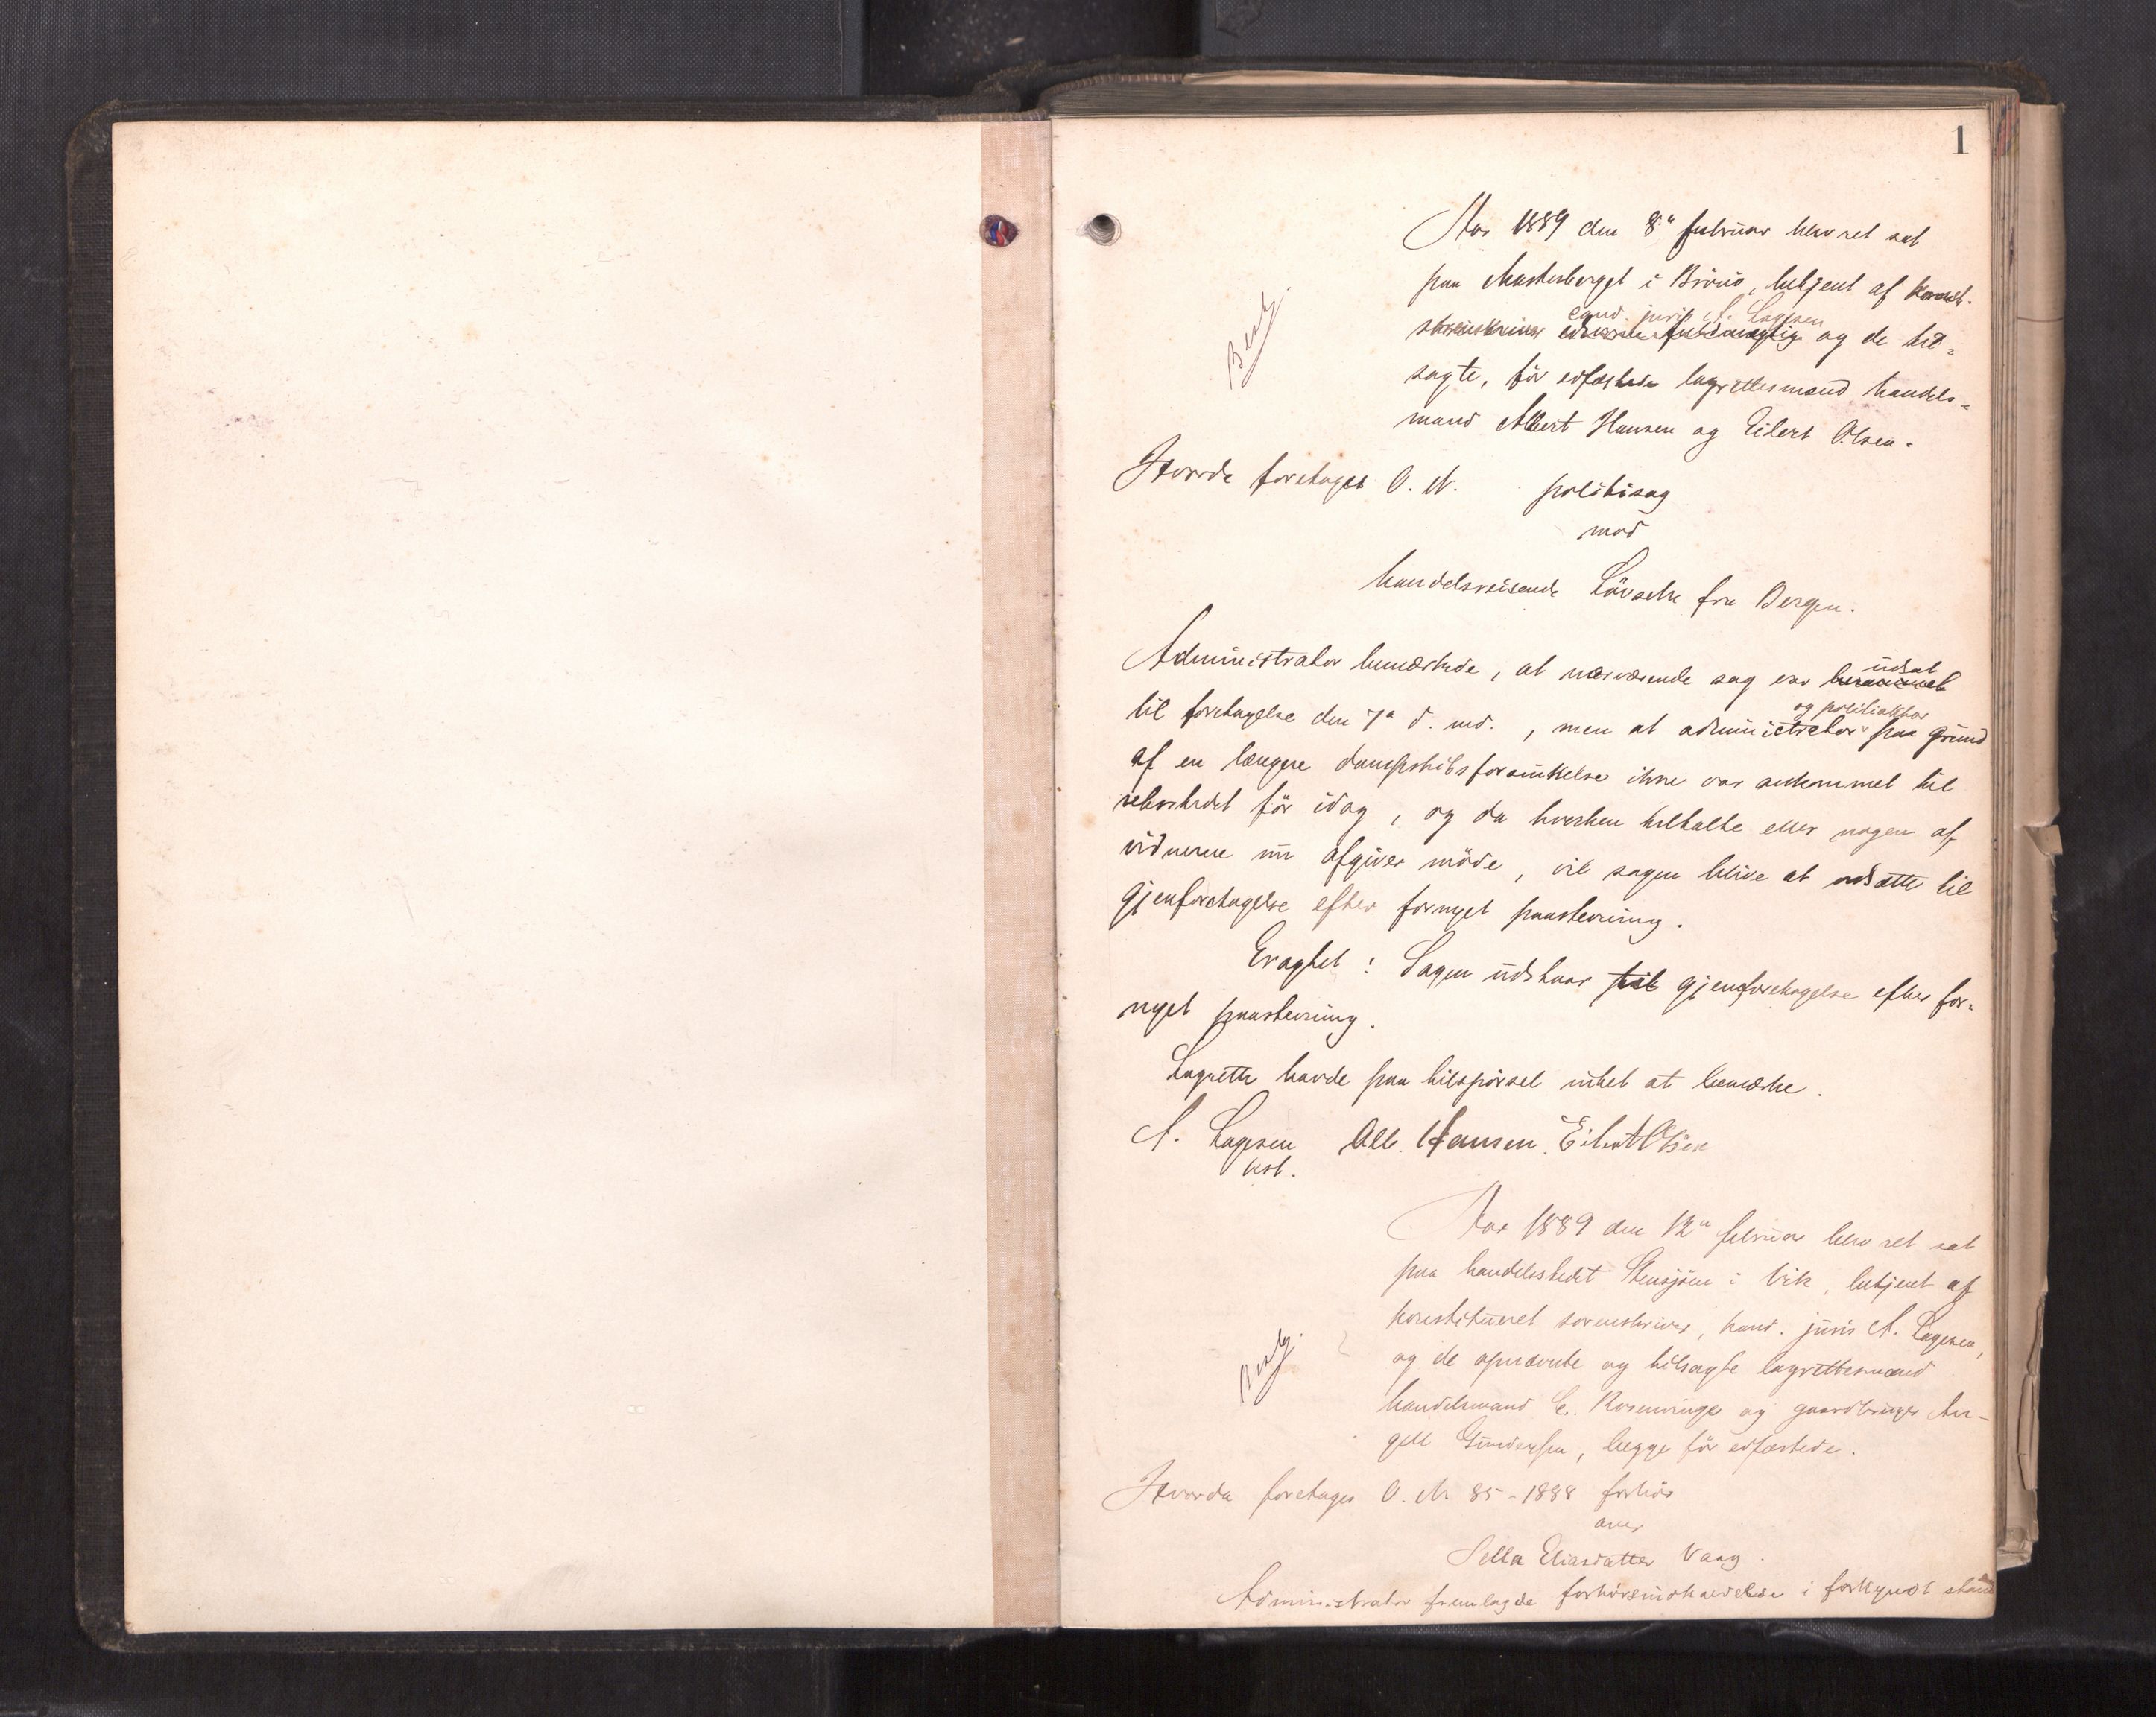 1
Aar 1889 den 8de februar blev ret sat
paa Mosterberget i Brönö, betjent af konst.
cand. juris A. Lagesen
sorenskriver edsvorne fuldmægtig og de til-
sagte, før edfæstede lagrettesmænd handels-
mand Albert Hansen og Eilert Olsen.
Hvorda foretages O. N. politisag
mod
handelsreisende Lövsche fra Bergen.
Administrator bemærkede, at nærværende sag var berammet
udsat
til foretagelse den 7de d. md., men at administrator paa grund
og politiaktor
af en længere dampskibsforsinkelse ikke var ankommet til
retsstedet før idag, og da hverken tiltalte eller nogen af
vidnerne nu afgiver møde, vil sagen blive at udsætte til
gjenforetagelse efter fornyet paastevning.
Eragtet: Sagen udstaar til gjenforetagelse efter for-
nyet paastevning.
Lagrette havde paa tilspørsel intet at bemærke.
A. Lagesen Alb. Hansen. Eilert Olsen
kst.
Aar 1889 den 12te februar blev ret sat
paa handelsstedet Stensjöen i Vik, betjent af
konstitueret sorenskriver, kand. juris A. Lagesen,
og de opnævnte og tilsagte lagrettesmænd
handelsmand C. Rosenvinge og gaardbruger An-
gell Gundersen, begge før edfæstede.
Hvorda foretages O. N. 85-1888 forhør
over
Sella Eliasdatter Vaag.
Administrator fremlagde forhørsindkaldelse i forkyndt stand